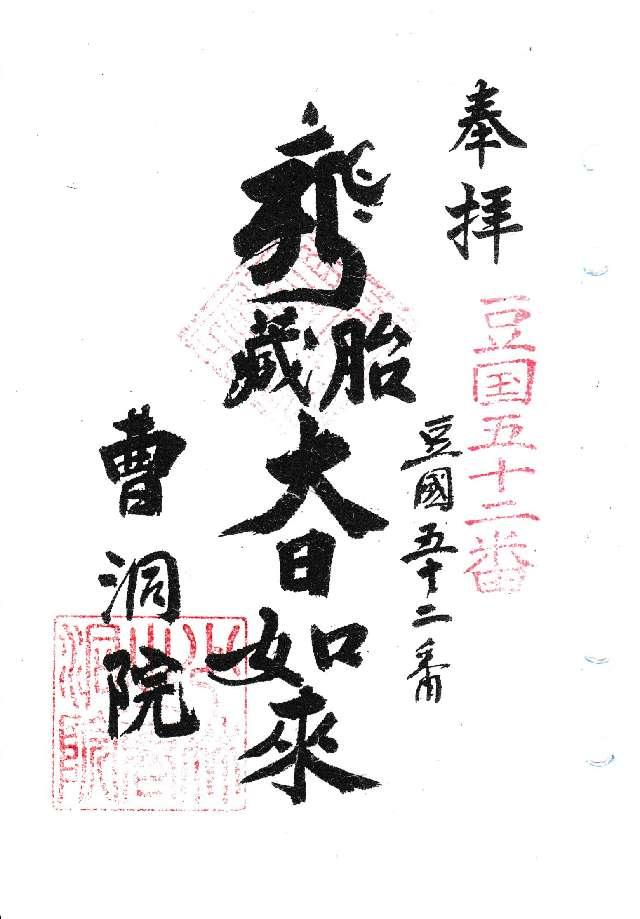 奉拝
豆国五十二番
豆國五十二番
胎蔵
大日如來
曹洞院